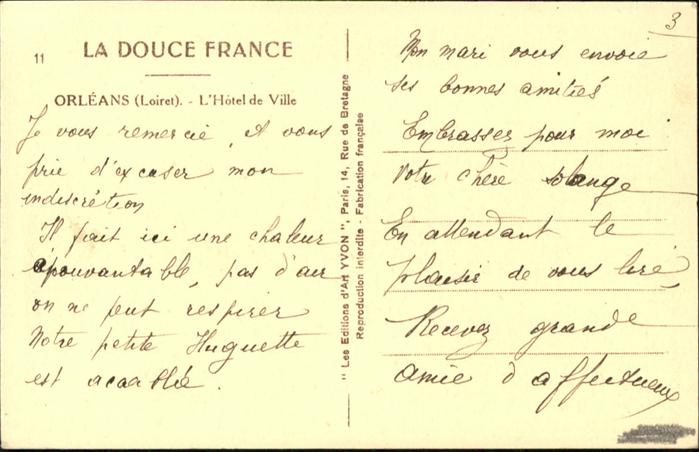 3
11
LA DOUCE FRANCE
ORLÉANS (Loiret). - L'Hôtel de Ville
Je vous remercie, et vous
prie d'excuser mon
indiscrétion
Il fait ici une chaleur
épouvantable, pas d'air
on ne peut respirer
Notre petite Huguette
est acablé.
" Les Editions d'Art YVON ", Paris, 14, Rue de Bretagne
Reproduction interdite - Fabrication française
Mon mari vous envoie
ses bonnes amitiés
Embrassez pour moi
votre chère Solange
En attendant le
plaisir de vous lire,
Recevez grande
amie d'affectueux